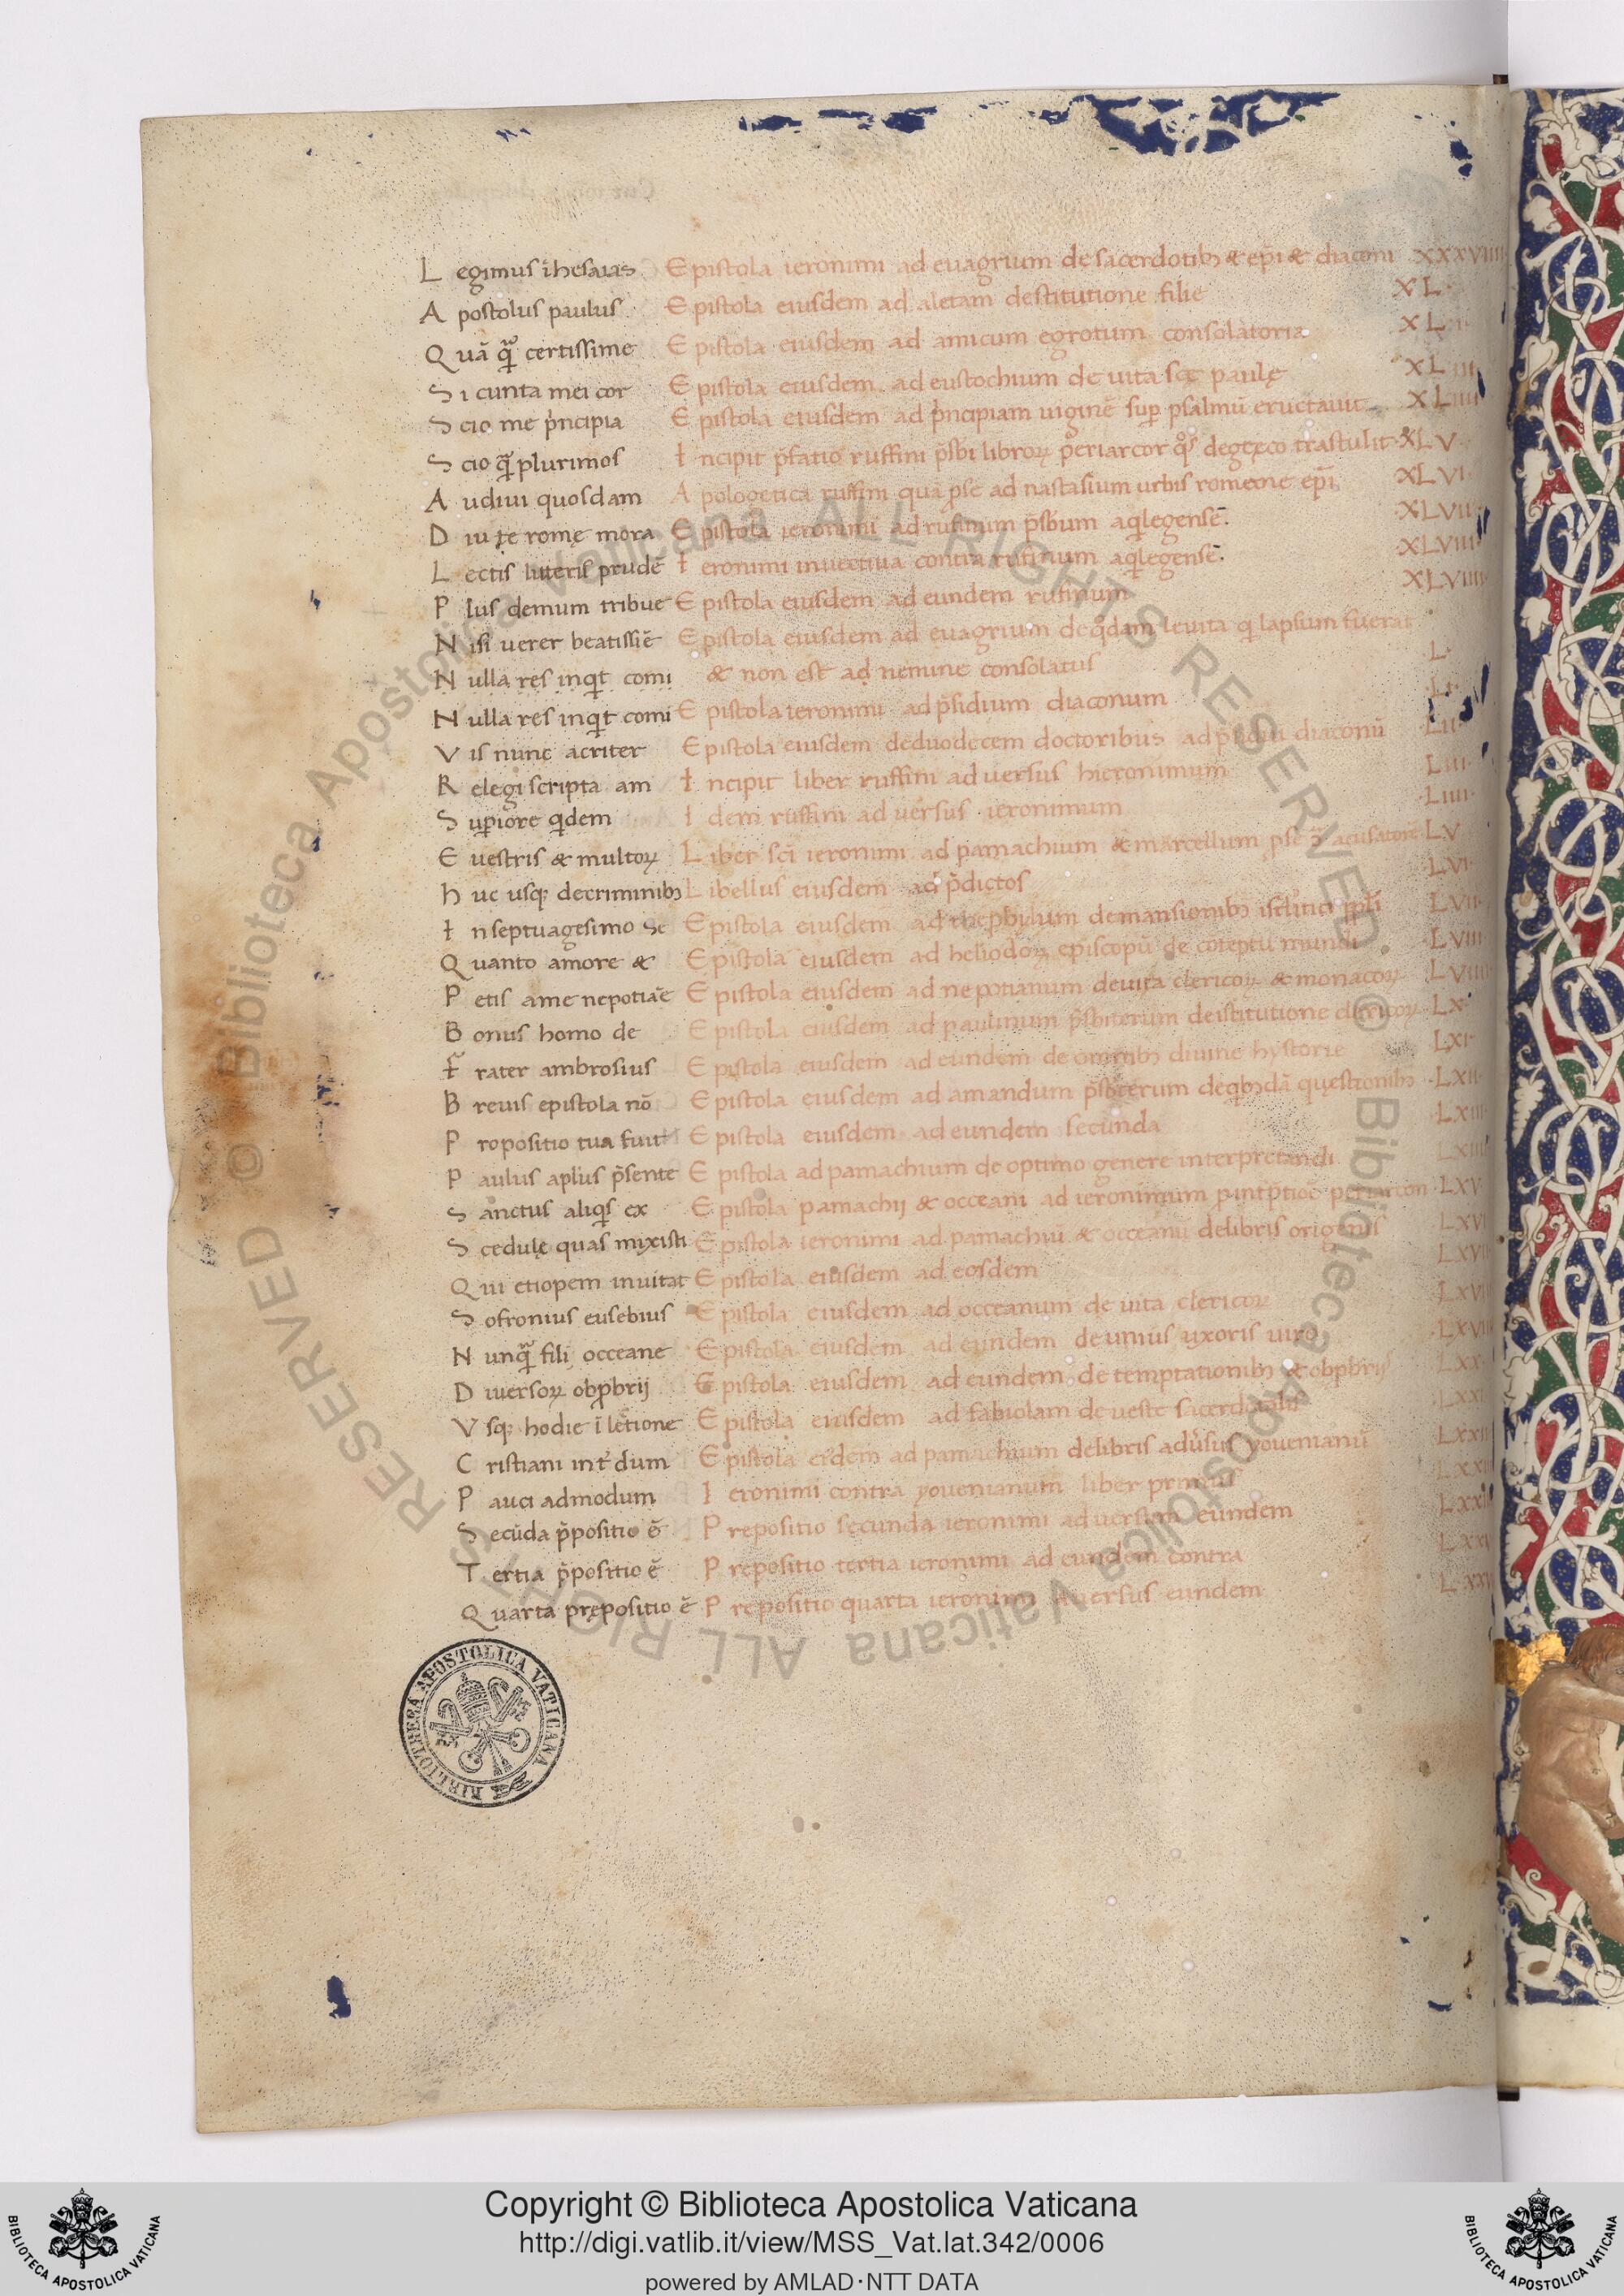 L egimus ī hesaias Epistola ieronimi ad euagrium de sacerdotibꝫ & ep̄i & diaconi XXXVIIII
A postolus paulus Epistola eiusdem ad aletam destitutione filie XL
Q uā qꝫ certissime Epistola eiusdem ad amicum egrotum consolatoria XLI
S i cunta mei cor Epistola eiusdem ad eustochium de uita scē paulę XLIII
S cio me p̍ncipia Epistola eiusdem ad p̍ncipiam uiginē sup psalmū eructauit XLIIII
S cio qꝫ plurimos Incipit p̄fatio ruffini p̄sbi libroꝝ periarcor qͦs degręco trastulit XLV
A udiui quosdam Apologetica ruffini quā pse ad nastasium urbis romeone ep̄i XLVI
D iu te romę mora Epistola ieronimi ad rufinum p̄sbum aqlegensē XLVII
L ectis litteris prudē Ieronimi inuectiua contra rufinum aqlegensē XLVIII
P lus demum tribue Epistola eiusdem ad eundem rufinum XLVIIII
N isi uerer beatissiē Epistola eiusdem ad euagrium de qdam leuita q lapsum fuerat
N ulla res inqt comi & non est ad nemine consolatus L
N ulla res inqt comi Epistola ieronimi ad p̄sidium diaconum LI
V is nunc acriter Epistola eiusdem deduodecem doctoribus ad p̄sidiū diaconū LII
R elegi scripta am Incipit liber ruffini aduersus hieronimum LIII
S upiore qdem Idem ruffini ad uersus ieronimum LIIII
E uestris & multoꝝ Liber sci ieronimi ad pamachium & marcellum pse ꝯ acusatorē LV
h uc usqꝫ decriminibꝫ Libellus eiusdem ad p̄dictos LVI
I n septuagesimo se Epistola eiusdem ad thephylum demansionibꝫ isrlitici ppli LVII
Q uanto amore & Epistola eiusdem ad heliodoꝝ episcopū de cōteptu mundi LVIII
P etis ame nepotiāe Epistola eiusdem ad nepotianum deuita clericoꝝ & monacoꝝ LVIIII
B onus homo de Epistola eiusdem ad paulinum p̄sbiterum deistitutione clericoꝝ LX
F rater ambrosius Epistola eiusdem ad eundem de omnibꝫ diuine hystorie LXI
B reuis epistola nō Epistola eiusdem ad amandum p̄sbiterum deqbꝫdā quęstionibꝫ LXII
P ropositio tua fuit Epistola eiusdem ad eundem secunda LXIII
P aulus aplus p̄sente Epistola ad pamachium de optimo genere interpretandi LXIIII
S anctus aliqis ex Epistola pamachij & occeani ad ieronimum pintp̄tioe periarcon LXV
S cedulę quas mixisti Epistola ieronimi ad pamachiū & occeanū delibris origenis LXVI
Q ui etiopem inuitat Epistola eiusdem ad eosdem LXVII
S ofronius eusebius Epistola eiusdem ad occeanum de uita clericoꝝ LXVII
N unqꝫ fili occeane Epistola eiusdem ad eundem deunius uxoris uiro LXVII
D iuersoꝝ obpbrij Epistola eiusdem ad eundem de temptationibꝫ & obpbrijs LXX
V sqꝫ hodie ī letione Epistola eiusdem ad fabiolam de ueste sacerdotali LXXI
C ristiani int̍dum Epistola eidem ad pamachium delibris adusus youenianū LXXII
P auci admodum Ieronimi contra youenianum liber primus LXXI
S ecūda p̄positio ē Prepositio secunda ieronimi aduersum eundem LXXI
T ertia p̄positio ē Prepositio tertia ieronimi ad eundem contra LXXV
Q uarta prępositio ē Prepositio quarta ieronimi aduersus eundem LXXV
BIBLIOTHECA APOSTOLICA VATICANA
Copyright © Biblioteca Apostolica Vaticana
http://digi.vatlib.it/view/MSS_Vat.lat.342/0006
powered by AMLAD·NTT DATA
BIBLIOTECA APOSTOLICA VATICANA
BIBLIOTECA APOSTOLICA VATICANA
© Biblioteca Apostolica Vaticana ALL RIGHTS RESERVED
© Biblioteca Apostolica Vaticana ALL RIGHTS RESERVED